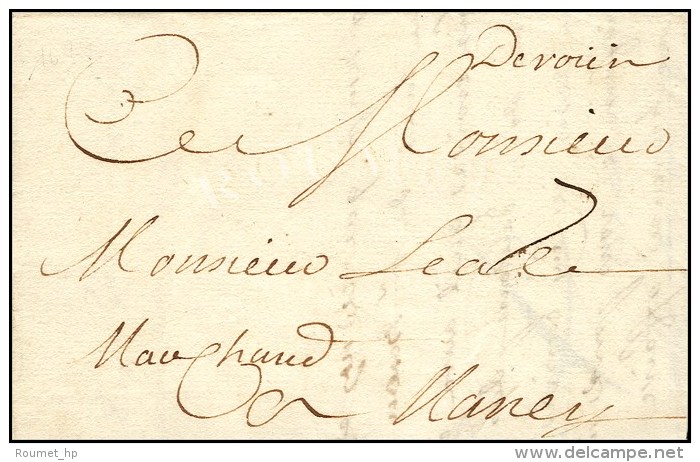 De roüen
A Monsieur
Monsieur
Marchand
A Nancy
Roumet_hp
www.delcampe.net